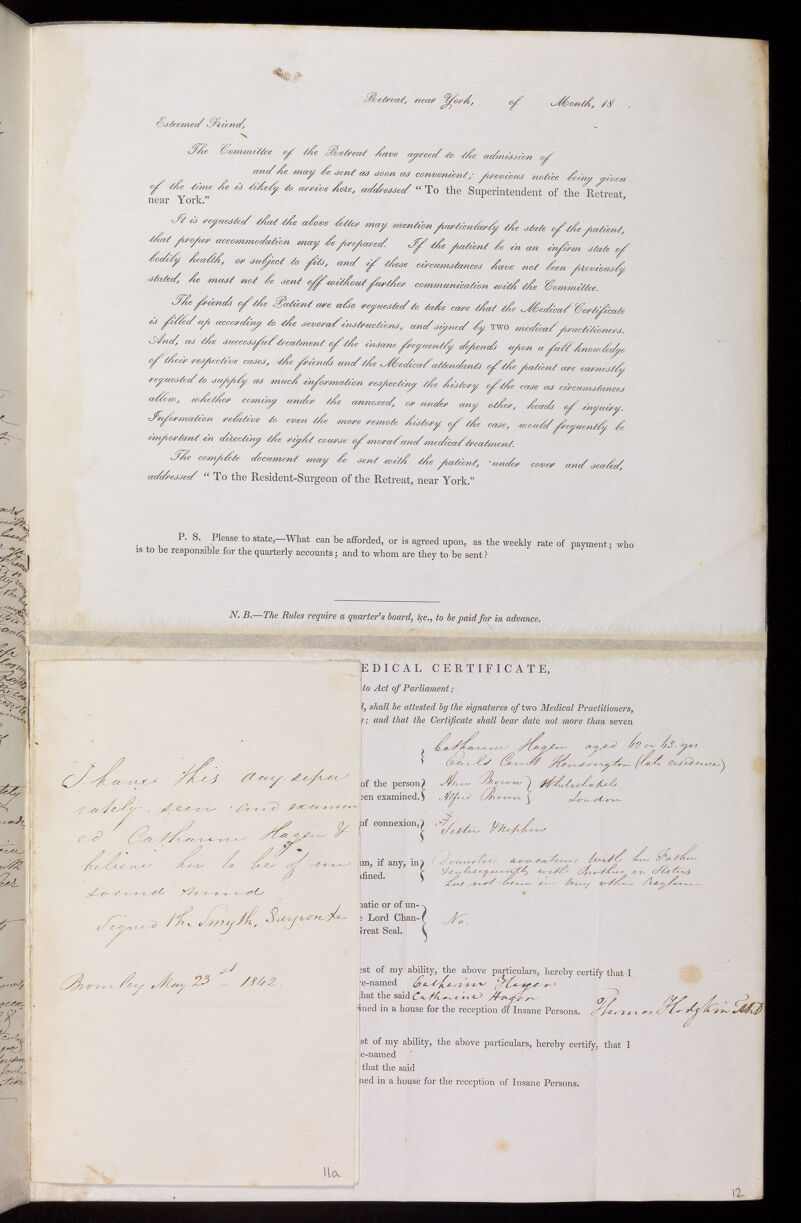 Retreat, near York, of Month, 18 .
Esteemed Friend,
The Committee of the Retreat have agreed to the admission of
and he may be sent as soon as convenient; previous notice being given
of the time he is likely to arrive here, addressed "To the Superintendent of the Retreat,
near York."
It is requested that the above letter may mention particularly the state of the patient,
that proper accommodation may be prepared. If the patient be in an infirm state of
bodily health, or subject to fits, and if these circumstances have not been previously
stated, he must not be sent off without further communication with the Committee.
The friends of the Patient are also requested to take care that the Medical Certificate
is filled up according to the several instructions, and signed by TWO medical practitioners.
And, as the successful treatment of the insane frequently depends upon a full knowledge
of their respective cases, the friends and the Medical attendants of the patient are earnestly
requested to supply as much information respecting the history of the case as circumstances
allow, whether coming under the annexed, or under any other, heads of inquiry.
Information relative to even the more remote history of the case, would frequently be
important in directing the right course of moral and medical treatment.
The complete document may be sent with the patient, under cover and sealed,
addressed "To the Resident-Surgeon of the Retreat, near York."
P. S. Please to state,—What can be afforded, or is agreed upon, as the weekly rate of payment; who
is to be responsible for the quarterly accounts; and to whom are they to be sent?
N. B.—The Rules require a quarter's board, &c., to be paid for in advance.
EDICAL CERTIFICATE,
to Act of Parliament;
, shall be attested by the signatures of two Medical Practitioners,
; and that the Certificate shall bear date not more than seven
Catharine Hagen aged 62 or 63 yrs
Earls Court Kensington (late residence)
of the person Ann Brown Whitechapel
een examined. Alfred Brown London
of connexion, Sister & Nephew
m, if any, in Domestic avocations with her Father
nfined. Subsequently with Brothers or Sisters
has not been in any other Asylum
natic or of un-
e Lord Chan-
Great Seal. No.
est of my ability, the above particulars, hereby certify that I
e-named Catharine Hagen
that the said Catharine Hagen
ined in a house for the reception of Insane Persons. Thomas Hodgkin M.D
st of my ability, the above particulars, hereby certify, that I
e-named
that the said
ned in a house for the reception of Insane Persons.
I have this day sepa
rately seen and examin
ed Catharine Hagen &
believe her to be of un
sound mind
Signed Th. Smyth, Surgeon &c
Bromley May 23st 1842.
11a
12